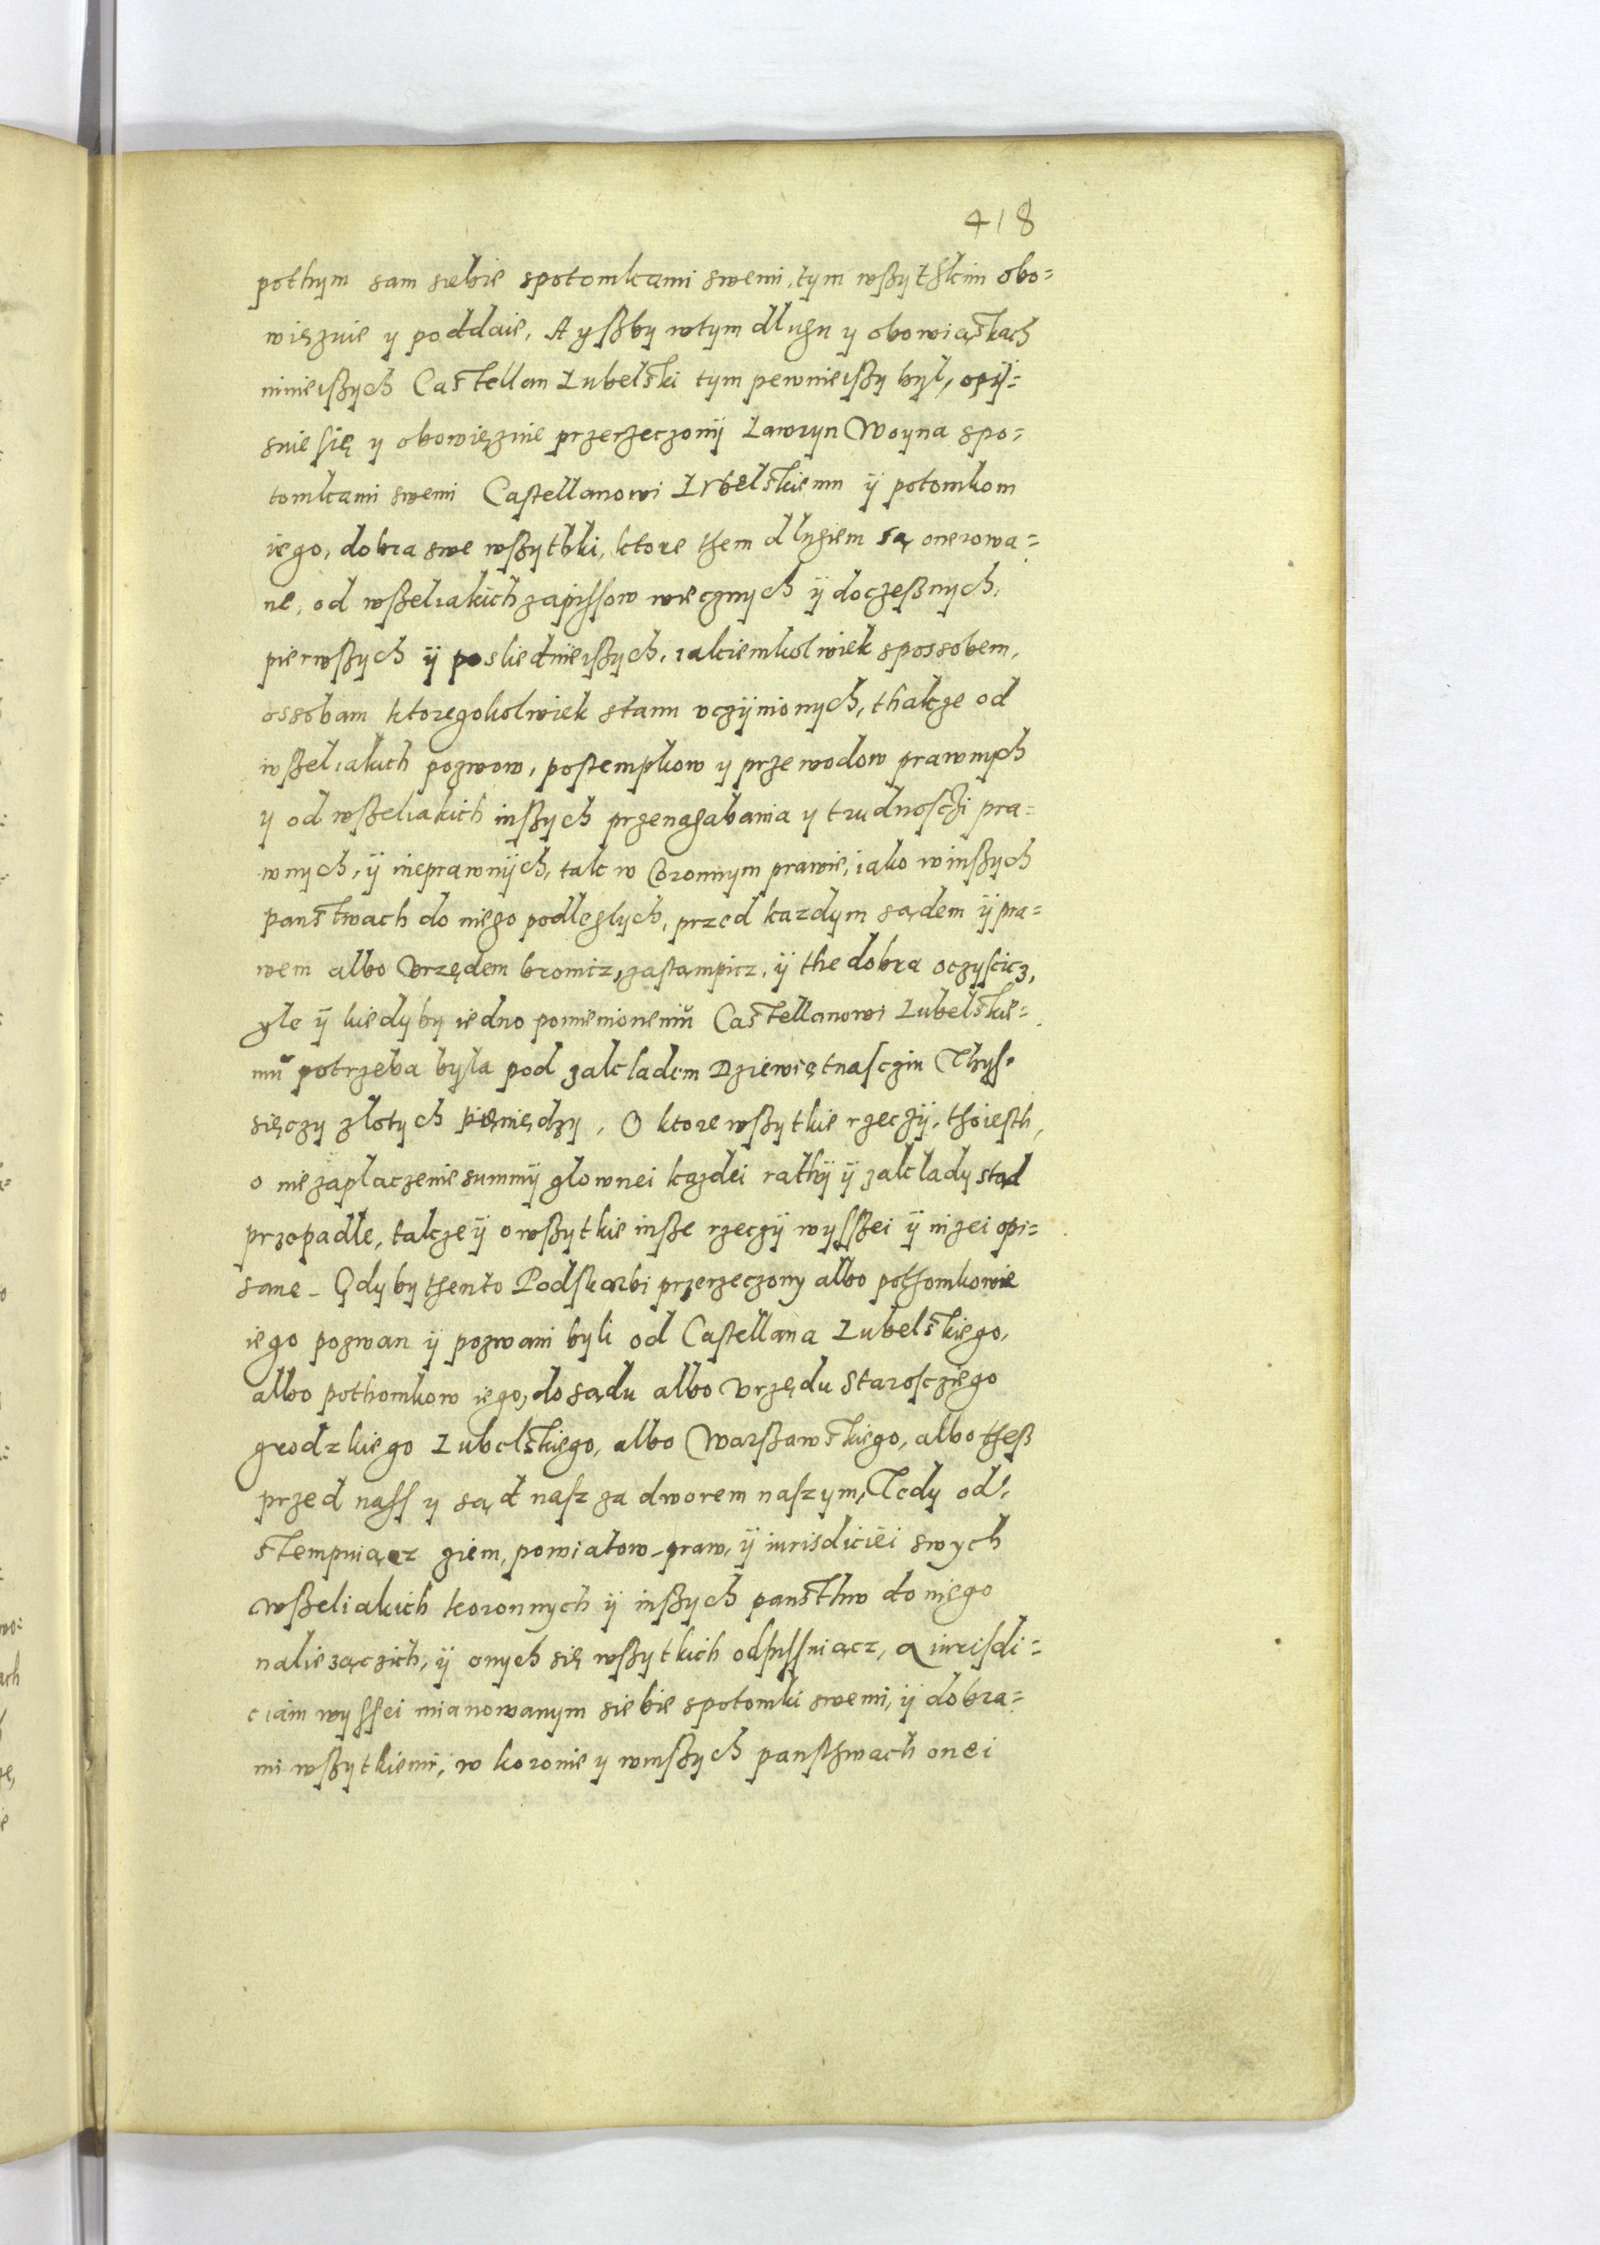 418
pothym sam siebie spotomkami swemi, tym wszythkim obo=
więzuie y poddaie, A yszby wtym dlugu y obowiąskach
ninieiszych Castellan Lubelski tym pewnieiszy był, opij=
suie się y obowięzuie przerzeczonij Lawryn Woyna spo=
tomkami swemi Castellanowi Lubelskiemu ij potomkom
iego, dobra swe wszythki, ktore them dlugiem są onerowa=
ne, od wszeliakich zapissow wiecznych ij doczesznych,
pierwszych ij posliednieiszych, iakiemkolwiek spossobem,
ossobam ktoregokolwiek stanu vczijnionych, thakze od
wszeliakich pozwow, postempkow y przewodow prawnych
y od wszeliakich inszych przenagabania y trudnosczi pra=
wnych, ij nieprawnijch, tak w Coronnym prawie, iako winszych
panstwach do niego podleglych, przed kazdym sądem ij pra=
wem albo Vrzędem bronicz, zastampicz, ij the dobra oczyscicz,
yle ij kiedyby iedno pomienionemu Castellanowi Lubelskie=
mu potrzeba była pod zakladem Dziewiętnasczin Thys=
sięczy zlotych pięniędzy. O ktore wszytkie rzeczij, thoiesth,
o niezaplaczenie summij glownei kazdei rathij ij zaklady stąd
przopadle, takze ij o wszytkie insze rzeczij wyszszei ij nizei opi=
sane _ Gdyby thento Podskarbi przerzeczony albo pothomkowie
iego pozwan ij pozwani byli od Castellana Lubelskiego,
albo pothomkow iego, do sądu albo Vrzędu Staroscziego
grodzkiego Lubelskiego, albo Warszawskiego, albo thesz
przed nass y sąd nasz za dworem naszym, Tedy od=
stempuiącz ziem, powiatow _ praw, ij iurisdiciei swych
wszeliakich koronnych ij inszych pansthw do niego
naliezączich, ij onych się wszytkich odpissuiącz, a iurisdi=
ciam wyssei mianowanym siebie spotomki swemi, ij dobra=
mi wszytkiemi, w koronie y winszych pansthwach onei